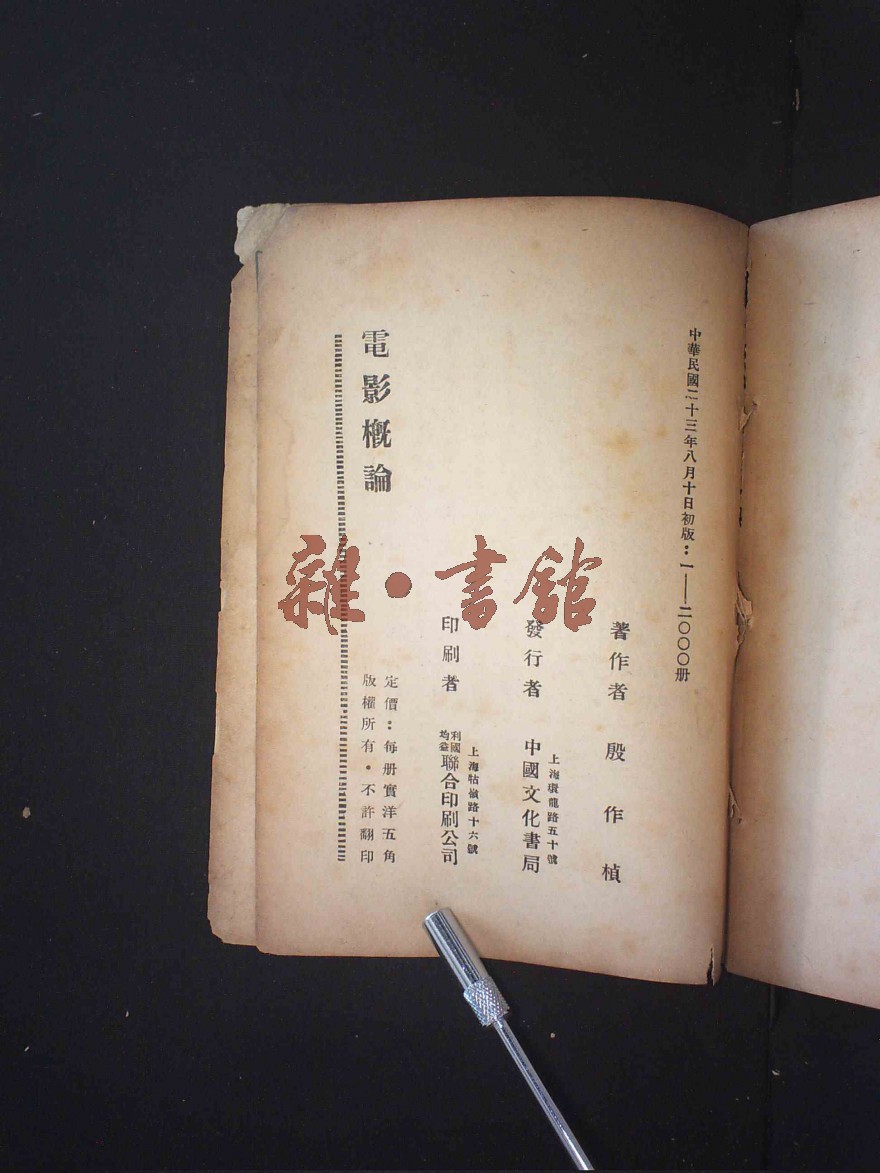 中華民國二十三年八月十日初版：一——二〇〇〇册
著作者 殷作楨
上海黃龍路五十號
發行者 中國文化書局
上海牯嶺路十六號
印刷者 利國均益聯合印刷公司
定價：每册實洋五角
版權所有・不許翻印
電影概論
雜・書館